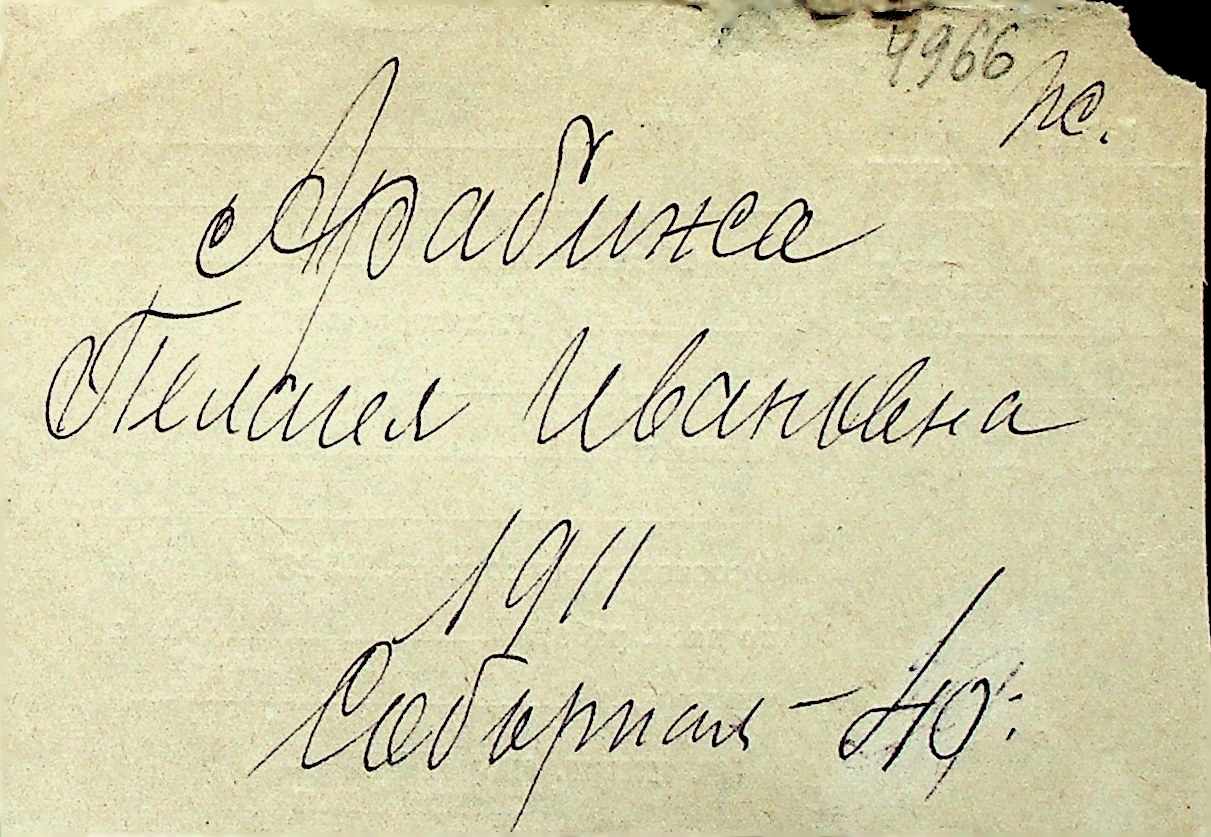 4966 рс.
Арабижа
Пелагея Ивановна
1911
Соборная – 40: